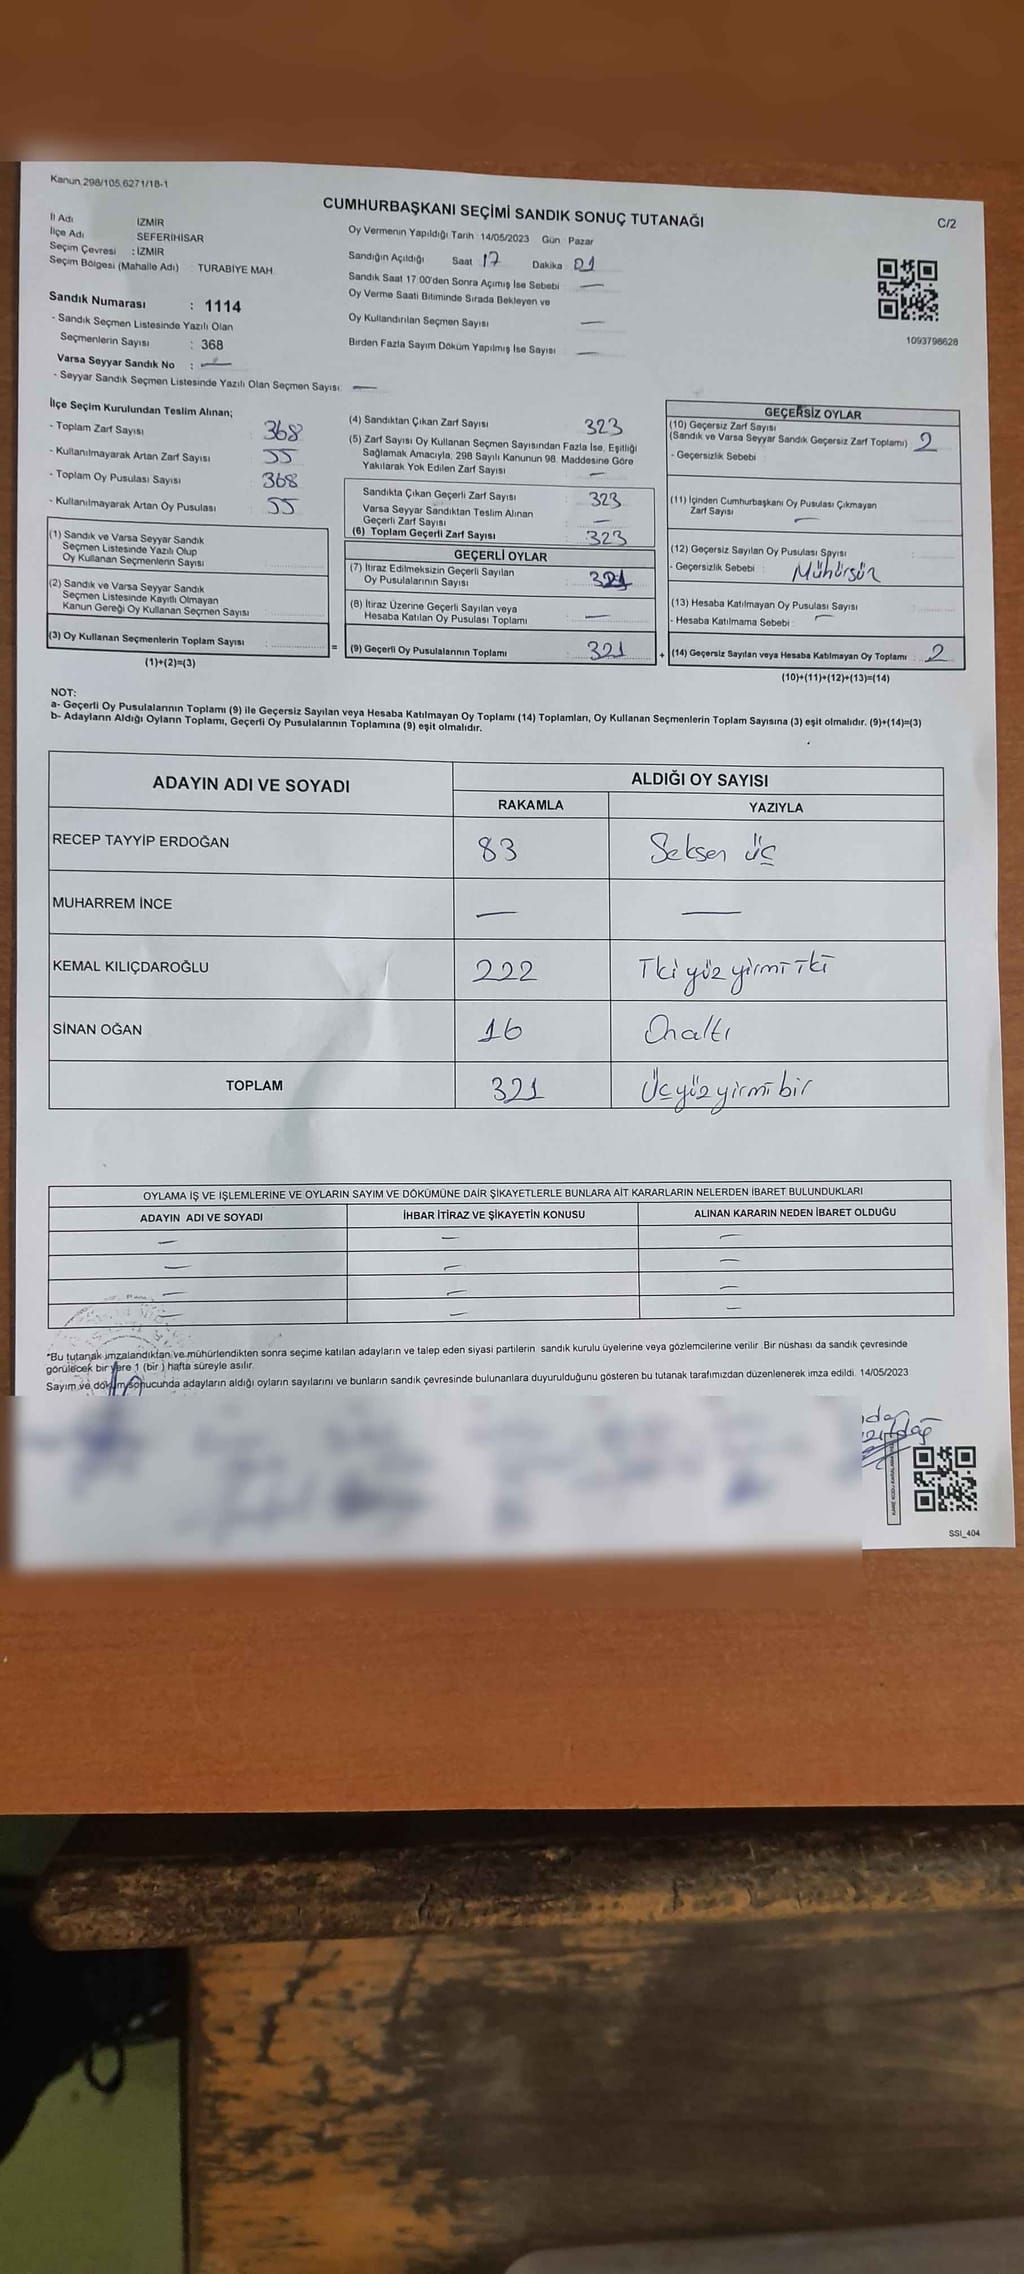 Kanun 298/105.6271/18-1
CUMHURBAŞKANI SEÇİMİ SANDIK SONUÇ TUTANAĞI
C/2
İl Adı İZMİR
İlçe Adı SEFERİHİSAR
Seçim Çevresi : İZMİR
Seçim Bölgesi (Mahalle Adı) TURABİYE MAH.
Sandık Numarası : 1114
- Sandık Seçmen Listesinde Yazılı Olan
Seçmenlerin Sayısı : 368
Varsa Seyyar Sandık No : —
- Seyyar Sandık Seçmen Listesinde Yazılı Olan Seçmen Sayısı —
Oy Vermenin Yapıldığı Tarih 14/05/2023 Gün Pazar
Sandığın Açıldığı Saat 17 Dakika 01
Sandık Saat 17:00'den Sonra Açımış İse Sebebi —
Oy Verme Saati Bitiminde Sırada Bekleyen ve
Oy Kullandırılan Seçmen Sayısı —
Birden Fazla Sayım Döküm Yapılmış İse Sayısı —
1093798628
İlçe Seçim Kurulundan Teslim Alınan;
- Toplam Zarf Sayısı 368
- Kullanılmayarak Artan Zarf Sayısı 55
- Toplam Oy Pusulası Sayısı 368
- Kullanılmayarak Artan Oy Pusulası 55
(1) Sandık ve Varsa Seyyar Sandık
Seçmen Listesinde Yazılı Olup
Oy Kullanan Seçmenlerin Sayısı
(2) Sandık ve Varsa Seyyar Sandık
Seçmen Listesinde Kayıtlı Olmayan
Kanun Gereği Oy Kullanan Seçmen Sayısı
(3) Oy Kullanan Seçmenlerin Toplam Sayısı
(1)+(2)=(3)
=
(4) Sandıktan Çıkan Zarf Sayısı 323
(5) Zarf Sayısı Oy Kullanan Seçmen Sayısından Fazla İse, Eşitliği
Sağlamak Amacıyla, 298 Sayılı Kanunun 98. Maddesine Göre
Yakılarak Yok Edilen Zarf Sayısı —
Sandıkta Çıkan Geçerli Zarf Sayısı 323
Varsa Seyyar Sandıktan Teslim Alınan
Geçerli Zarf Sayısı —
(6) Toplam Geçerli Zarf Sayısı 323
GEÇERLİ OYLAR
(7) İtiraz Edilmeksizin Geçerli Sayılan
Oy Pusulalarının Sayısı 321
(8) İtiraz Üzerine Geçerli Sayılan veya
Hesaba Katılan Oy Pusulası Toplamı —
(9) Geçerli Oy Pusulalarının Toplamı 321
+
GEÇERSİZ OYLAR
(10) Geçersiz Zarf Sayısı
(Sandık ve Varsa Seyyar Sandık Geçersiz Zarf Toplamı) 2
- Geçersizlik Sebebi
(11) İçinden Cumhurbaşkanı Oy Pusulası Çıkmayan
Zarf Sayısı —
(12) Geçersiz Sayılan Oy Pusulası Sayısı
- Geçersizlik Sebebi Mühürsür
(13) Hesaba Katılmayan Oy Pusulası Sayısı
- Hesaba Katılmama Sebebi —
(14) Geçersiz Sayılan veya Hesaba Katılmayan Oy Toplamı 2
(10)+(11)+(12)+(13)=(14)
NOT:
a- Geçerli Oy Pusulalarının Toplamı (9) ile Geçersiz Sayılan veya Hesaba Katılmayan Oy Toplamı (14) Toplamları, Oy Kullanan Seçmenlerin Toplam Sayısına (3) eşit olmalıdır. (9)+(14)=(3)
b- Adayların Aldığı Oyların Toplamı, Geçerli Oy Pusulalarının Toplamına (9) eşit olmalıdır.
ADAYIN ADI VE SOYADI ALDIĞI OY SAYISI
RAKAMLA YAZIYLA
RECEP TAYYİP ERDOĞAN 83 Seksen üç
MUHARREM İNCE — —
KEMAL KILIÇDAROĞLU 222 İki yüz yirmi iki
SİNAN OĞAN 16 Onaltı
TOPLAM 321 Üçyüz yirmi bir
OYLAMA İŞ VE İŞLEMLERİNE VE OYLARIN SAYIM VE DÖKÜMÜNE DAİR ŞİKAYETLERLE BUNLARA AİT KARARLARIN NELERDEN İBARET BULUNDUKLARI
ADAYIN ADI VE SOYADI İHBAR İTİRAZ VE ŞİKAYETİN KONUSU ALINAN KARARIN NEDEN İBARET OLDUĞU
— — —
— — —
— — —
— — —
*Bu tutanak imzalandıktan ve mühürlendikten sonra seçime katılan adayların ve talep eden siyasi partilerin sandık kurulu üyelerine veya gözlemcilerine verilir. Bir nüshası da sandık çevresinde
görülecek bir yere 1 (bir) hafta süreyle asılır.
Sayım ve döküm sonucunda adayların aldığı oyların sayılarını ve bunların sandık çevresinde bulunanlara duyurulduğunu gösteren bu tutanak tarafımızdan düzenlenerek imza edildi. 14/05/2023
SSI_404